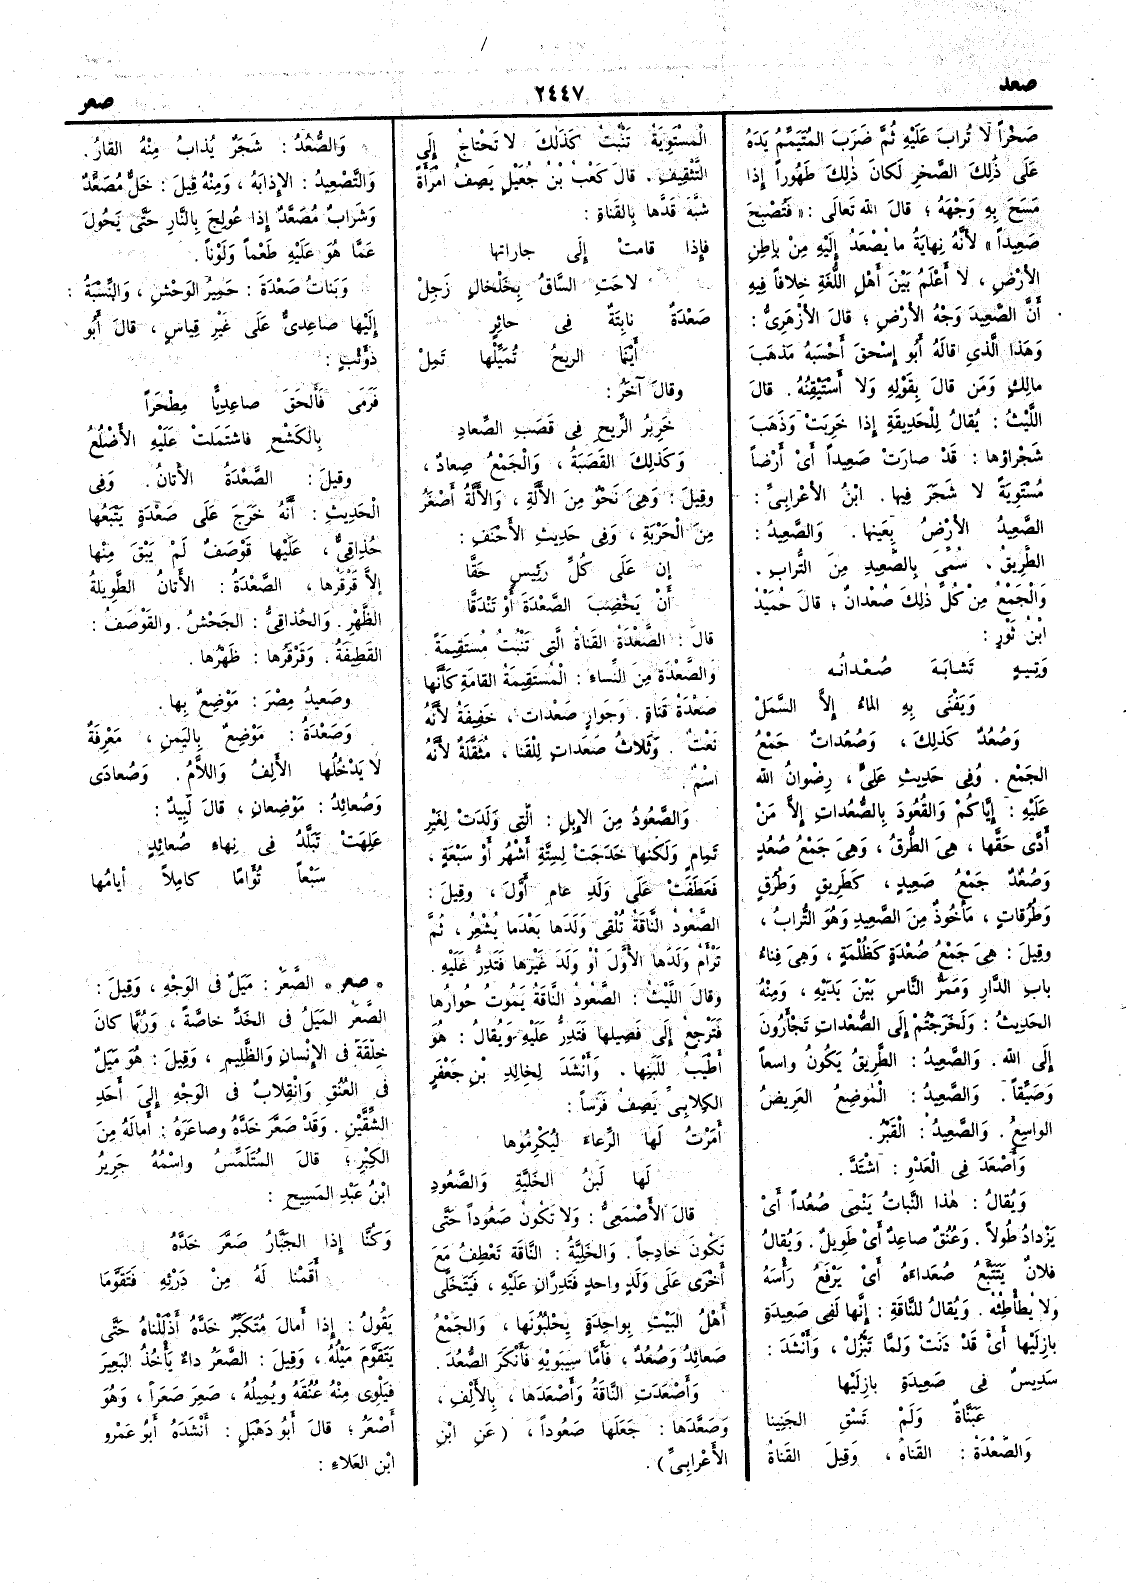 صعد
٢٤٤٧
صعر
صَخْراً لَا تُرابَ عَلَيْهِ ثُمَّ ضَرَبَ المُتَيَمِّمُ يَدَهُ
عَلَى ذٰلِكَ الصَّخْرِ لَكانَ ذٰلِكَ طَهُوراً إِذا
مَسَحَ بِهِ وَجْهَهُ ؛ قالَ اللهُ تَعالَى : « فَتُصْبِحَ
صَعِيداً » لأَنَّهُ نِهايَةُ ما يَصْعَدُ إِلَيْهِ مِنْ باطِنِ
الأَرْضِ ، لَا أَعْلَمُ بَيْنَ أَهْلِ اللُّغَةِ خِلافاً فِيهِ
أَنَّ الصَّعِيدَ وَجْهُ الأَرْضِ ؛ قالَ الأَزْهَرِىُّ :
وَهَذا الَّذِى قالَهُ أَبُو إِسْحٰقَ أَحْسَبُهُ مَذْهَبَ
مالِكٍ وَمَنْ قالَ بِقَوْلِهِ وَلا أَسْتَيْقِنُهُ . قالَ
اللَّيْثُ : يُقالُ لِلْحَدِيقَةِ إِذا خَرِبَتْ وَذَهَبَ
شَجْراؤُها : قَدْ صارَتْ صَعِيداً أَىْ أَرْضاً
مُسْتَوِيَةً لا شَجَرَ فِيها . ابْنُ الأَعْرابِىِّ :
الصَّعِيدُ الأَرْضُ بِعَيْنِها . وَالصَّعِيدُ :
الطَّرِيقُ ، سُمِّىَ بِالصَّعِيدِ مِنَ التُّرابِ .
وَالْجَمْعُ مِنْ كُلِّ ذٰلِكَ صُعْدانٌ ؛ قالَ حُمَيْدُ
ابْنُ ثَوْرٍ :
وَتِيهٍ تَشابَهَ صُعْدانُهُ
وَيَفْنَى بِهِ الماءُ إِلاَّ السَّمَلْ
وَصُعُدٌ كَذٰلِكَ ، وَصُعُداتٌ جَمْعُ
الجَمْعِ . وَفِى حَدِيثِ عَلِىٍّ ، رِضْوانُ اللهِ
عَلَيْهِ : إِيَّاكُمْ وَالْقُعُودَ بِالصُّعُداتِ إِلاَّ مَنْ
أَدَّى حَقَّها ، هِىَ الطُّرُقُ ، وَهِىَ جَمْعُ صُعُدٍ
وَصُعُدٌ جَمْعُ صَعِيدٍ ، كَطَرِيقٍ وَطُرُقٍ
وَطُرُقاتٍ ، مَأْخُوذٌ مِنَ الصَّعِيدِ وَهُوَ التُّرابُ ،
وقِيلَ : هِىَ جَمْعُ صُعْدَةٍ كَظُلْمَةٍ ، وَهِىَ فِناءُ
بابِ الدَّارِ وَمَمَرُّ النَّاسِ بَيْنَ يَدَيْهِ ، وَمِنْهُ
الحَدِيثُ : وَلَخَرَجْتُمْ إِلَى الصُّعُداتِ تَجْأَرُونَ
إِلَى اللهِ . وَالصَّعِيدُ : الطَّرِيقُ يَكُونُ واسِعاً
وَضَيِّقاً . وَالصَّعِيدُ : الْمَوْضِعُ العَرِيضُ
الواسِعُ . وَالصَّعِيدُ : القَبْرُ .
وَأَصْعَدَ فِى الْعَدْوِ : اشْتَدَّ .
وَيُقالُ : هٰذا النَّباتُ يَنْمِى صُعُداً أَىْ
يَزْدادُ طُولاً . وَعُنُقٌ صاعِدٌ أَىْ طَوِيلٌ . وَيُقالُ
فُلانٌ يَتَتَبَّعُ صُعَداءَهُ أَىْ يَرْفَعُ رَأْسَهُ
وَلا يُطَأْطِئُهُ . وَيُقالُ للنَّاقَةِ : إِنَّها لَفِى صَعِيدَةِ
بازِلَيْها أَىْ قَدْ دَنَتْ وَلَمَّا تَبْزُلْ ، وَأَنْشَدَ :
سَدِيسٌ فِى صَعِيدَةِ بازِلَيْها
عَبَنَّاةٌ وَلَمْ تَسْقِ الجَنِينا
وَالصَّعْدَةُ : القَناةُ ، وَقِيلَ القَناةُ
الْمُسْتَوِيَةُ تَنْبُتُ كَذٰلِكَ لا تَحْتاجُ إِلَى
التَّثْقِيفِ . قالَ كَعْبُ بْنُ جُعَيْلٍ يَصِفُ امْرَأَةً
شَبَّهَ قَدَّها بِالقَناةِ :
فإِذا قامَتْ إِلَى جاراتِها
لاحَتِ السَّاقُ بِخَلْخالٍ زَجِلْ
صَعْدَةٌ نابِتَةٌ فِى حائِرٍ
أَيْنَما الرِّيحُ تُمَيِّلْها تَمِلْ
وقالَ آخَرُ :
خَرِيرُ الرِّيحِ فِى قَصَبِ الصِّعادِ
وَكَذٰلِكَ القَصَبَةُ ، وَالْجَمْعُ صِعادٌ ،
وقِيلَ : وَهِىَ نَحْوٌ مِنَ الأَلَّةِ ، وَالأَلَّةُ أَصْغَرُ
مِنَ الْحَرْبَةِ ، وَفِى حَدِيثِ الأَحْنَفِ :
إِن عَلَى كُلِّ رَئِيسٍ حَقَّا
أَنْ يَخْضِبَ الصَّعْدَةَ أَوْ تَنْدَقَّا
قالَ : الصَّعْدَةُ القَناةُ الَّتِى تَنْبُتُ مُسْتَقِيمَةً .
وَالصَّعْدَةُ مِنَ النِّساءِ : الْمُسْتَقِيمَةُ القامَةِ كَأَنَّها
صَعْدَةُ قَناةٍ . وَجَوارٍ صَعْدات ، خَفِيفَةٌ لأَنَّهُ
نَعْتٌ . وَثَلاثُ صَعَداتٍ لِلْقَنا ، مُثَقَّلَةٌ لأَنَّهُ
اسْمٌ .
وَالصَّعُودُ مِنَ الإِبِلِ : الَّتِى وَلَدَتْ لِغَيْرِ
تَمامٍ وَلَكِنَّها خَدَجَتْ لِسِتَّةِ أَشْهُرٍ أَوْ سَبْعَةٍ ،
فَعَطَفَتْ عَلَى وَلَدِ عامِ أَوَّلَ ، وقِيلَ :
الصَّعُودُ النَّاقَةُ تُلْقِى وَلَدَها بَعْدَما يُشْعِرُ ، ثُمَّ
تَرْأَمُ وَلَدَها الأَوَّلَ أَوْ وَلَدَ غَيْرِها فَتَدِرُّ عَلَيْهِ .
وقالَ اللَّيْثُ : الصَّعُودُ النَّاقَةُ يَمُوتُ حُوارُها
فَتَرْجِعُ إِلَى فَصِيلِها فَتَدِرُّ عَلَيْهِ وَيُقالُ : هُوَ
أَطْيَبُ لِلَبَنِها . وَأَنْشَدَ لِخالِدِ بْنِ جَعْفَرٍ
الكِلابِىِّ يَصِفُ فَرَساً :
أَمَرْتُ لَها الرِّعاءَ لِيُكْرِمُوها
لَها لَبَنُ الخَلِيَّةِ وَالصَّعُودِ
قالَ الأَصْمَعِىُّ : وَلا تَكُونُ صَعُوداً حَتَّى
تَكُونَ خادِجاً . وَالخَلِيَّةُ : النَّاقَةُ تَعْطِفُ مَعَ
أُخْرَى عَلَى وَلَدٍ واحِدٍ فَتَدِرَّانِ عَلَيْهِ ، فَيَتَخَلَّى
أَهْلُ البَيْتِ بِواحِدَةٍ يَحْلُبُونَها ، وَالجَمْعُ
صَعائِدُ وَصُعُدٌ ، فَأَمَّا سِيبَوَيْهِ فَأَنْكَرَ الصُّعُدَ .
وَأَصْعَدَتِ النَّاقَةُ وَأَصْعَدَها ، بِالأَلِفِ ،
وَصَعَّدَها : جَعَلَها صَعُوداً ، ( عَنِ ابْنِ
الأَعْرابِىِّ ) .
وَالصُّعُدُ : شَجَرٌ يُذابُ مِنْهُ القارُ .
وَالتَّصْعِيدُ : الإِذابَةُ ، وَمِنْهُ قِيلَ : خَلٌّ مُصَعَّدٌ
وَشَرابٌ مُصَعَّدٌ إِذا عُولِجَ بِالنَّارِ حَتَّى يَحُولَ
عَمَّا هُوَ عَلَيْهِ طَعْماً وَلَوْناً .
وَبَناتُ صَعْدَةَ : حَمِيرُ الوَحْشِ ، وَالنِّسْبَةُ
إِلَيْها صاعِدِىٌّ عَلَى غَيْرِ قِياسٍ ، قالَ أَبُو
ذُؤَيْبٍ :
فَرَمَى فَأَلْحَقَ صاعِدِيًّا مِطْحَراً
بِالكَشْحِ فاشْتَمَلَتْ عَلَيْهِ الأَضْلُعُ
وقِيلَ : الصَّعْدَةُ الأَتانُ . وَفِى
الْحَدِيثِ : أَنَّهُ خَرَجَ عَلَى صَعْدَةٍ يَتْبَعُها
حُذاقِىٌّ ، عَلَيْها قَوْصَفٌ لَمْ يَبْقَ مِنْها
إِلاَّ قَرْقَرُها ، الصَّعْدَةُ : الأَتانُ الطَّوِيلَةُ
الظَّهْرِ . وَالحُذاقِىُّ : الجَحْشُ . والقَوْصَفُ :
القَطِيفَةُ . وَقَرْقَرُها : ظَهْرُها .
وصَعِيدُ مِصْرَ : مَوْضِعٌ بِها .
وَصَعْدَةُ : مَوْضِعٌ بِاليَمَنِ ، مَعْرِفَةٌ
لا يَدْخُلُها الأَلِفُ وَاللاَّمُ . وَصُعادَى
وَصُعائِدُ : مَوْضِعانِ ، قالَ لَبِيدٌ :
عَلِهَتْ تَبَلَّدُ فِى نِهاءِ صُعائِدٍ
سَبْعاً تُؤَاماً كامِلاً أيامُها
* صعر * الصَّعَرُ : مَيَلٌ فِى الوَجْهِ ، وَقِيلَ :
الصَّعَرُ المَيَلُ فِى الخَدِّ خاصَّةً ، وَرُبَّما كانَ
خِلْقَةً فِى الإِنْسانِ وَالظَّلِيمِ ، وَقِيلَ : هُوَ مَيَلٌ
فِى العُنُقِ وَانْقِلابٌ فِى الوَجْهِ إِلَى أَحَدِ
الشِّقَّيْنِ . وَقَدْ صَعَّرَ خَدَّهُ وصاعَرَهُ : أَمالَهُ مِنَ
الكِبْرِ ؛ قالَ المُتَلَمِّسُ واسْمُهُ جَرِيرُ
ابْنُ عَبْدِ المَسِيحِ :
وَكُنَّا إِذا الجَبَّارُ صَعَّرَ خَدَّهُ
أَقَمْنا لَهُ مِنْ دَرْئِهِ فَتَقَوَّمَا
يَقُولُ : إِذا أَمالَ مُتَكَبِّرٌ خَدَّهُ أَذْلَلْناهُ حَتَّى
يَتَقَوَّمَ مَيْلُهُ ، وَقِيلَ : الصَّعَرُ داءٌ يَأْخُذُ البَعِيرَ
فَيَلْوِى مِنْهُ عُنُقَهُ ويُمِيلُهُ ، صَعِرَ صَعَراً ، وَهُوَ
أَصْعَرُ ؛ قالَ أَبُو دَهْبَلٍ : أَنْشَدَهُ أَبُو عَمْرِو
ابْنِ العَلاءِ :